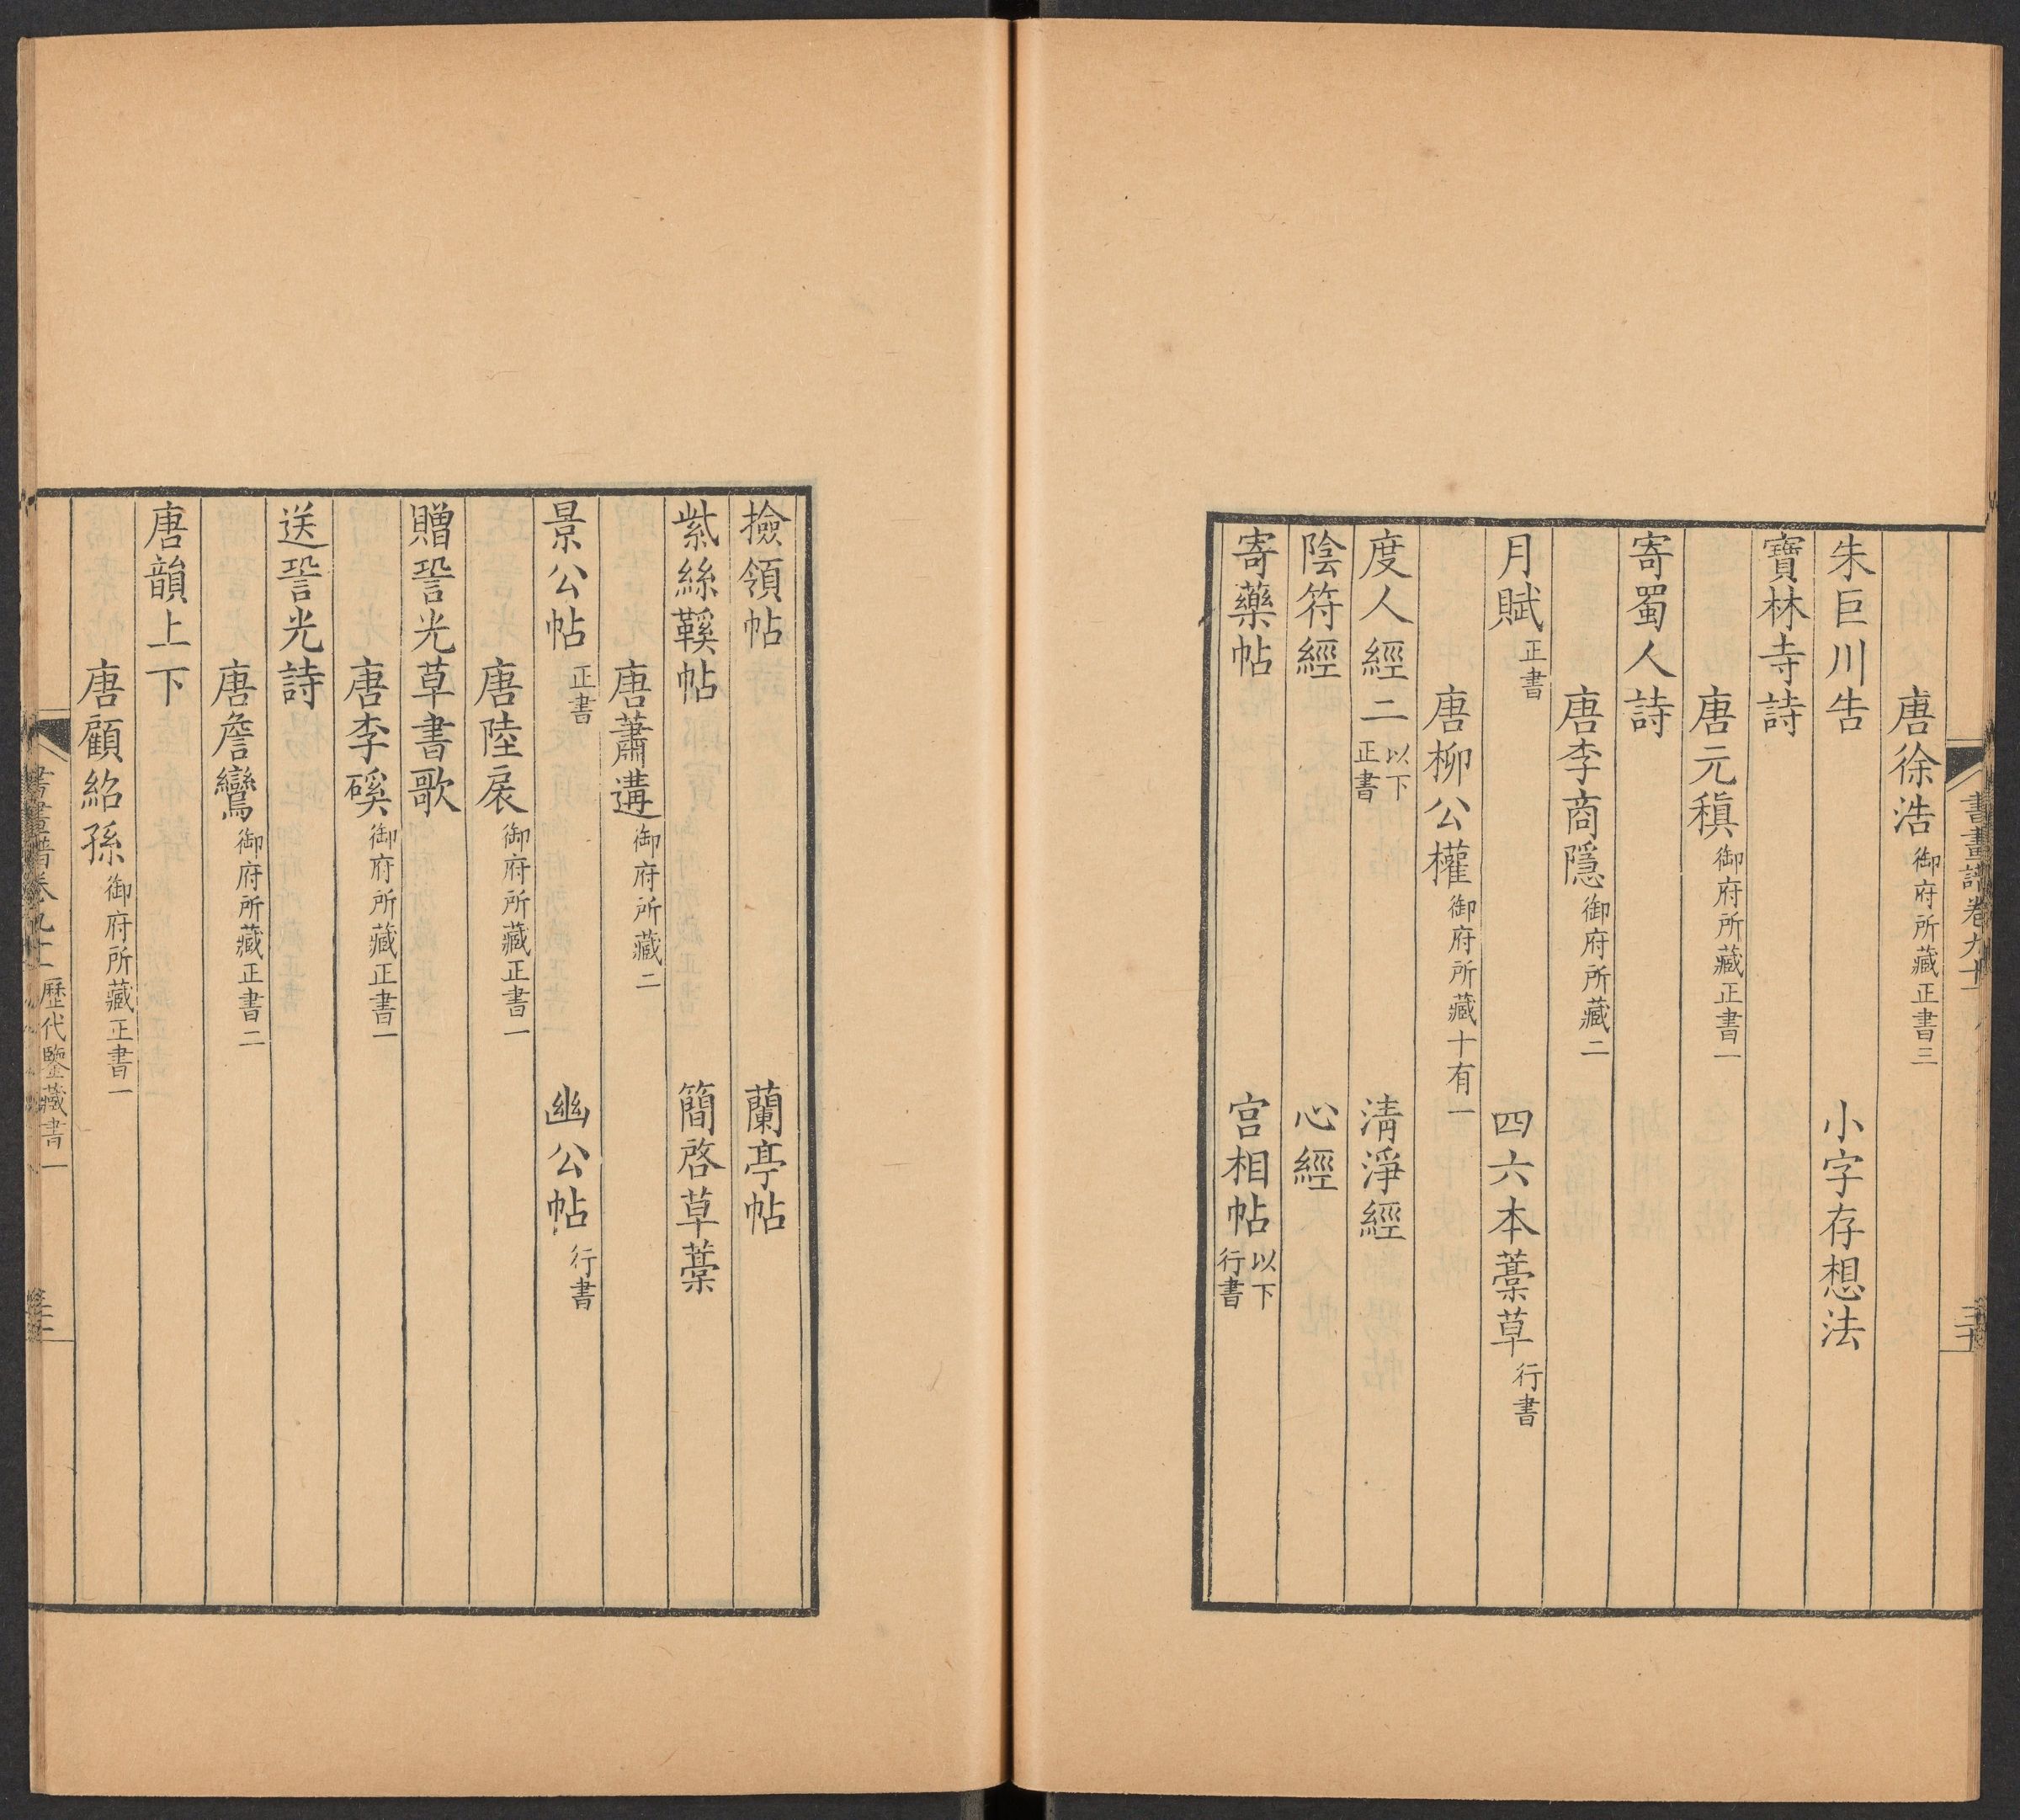 書畫譜卷九十一
三十
唐徐浩御府所藏正書三
朱巨川告 小字存想法
寶林寺詩
唐元稹御府所藏正書一
寄蜀人詩
唐李商隱御府所藏二
月賦正書 四六本藁草行書
唐柳公權御府所藏十有一
度人經二以下正書 清淨經
陰符經 心經
寄藥帖 宮相帖以下行書
撿領帖 蘭亭帖
紫絲鞵帖 簡啓草藁
唐蕭遘御府所藏二
景公帖正書 幽公帖行書
唐陸扆御府所藏正書一
贈䛒光草書歌
唐李磎御府所藏正書一
送䛒光詩
唐詹鸞御府所藏正書二
唐韻上下
唐顧紹孫御府所藏正書一
書畫譜卷九十一 歷代鑒藏書一